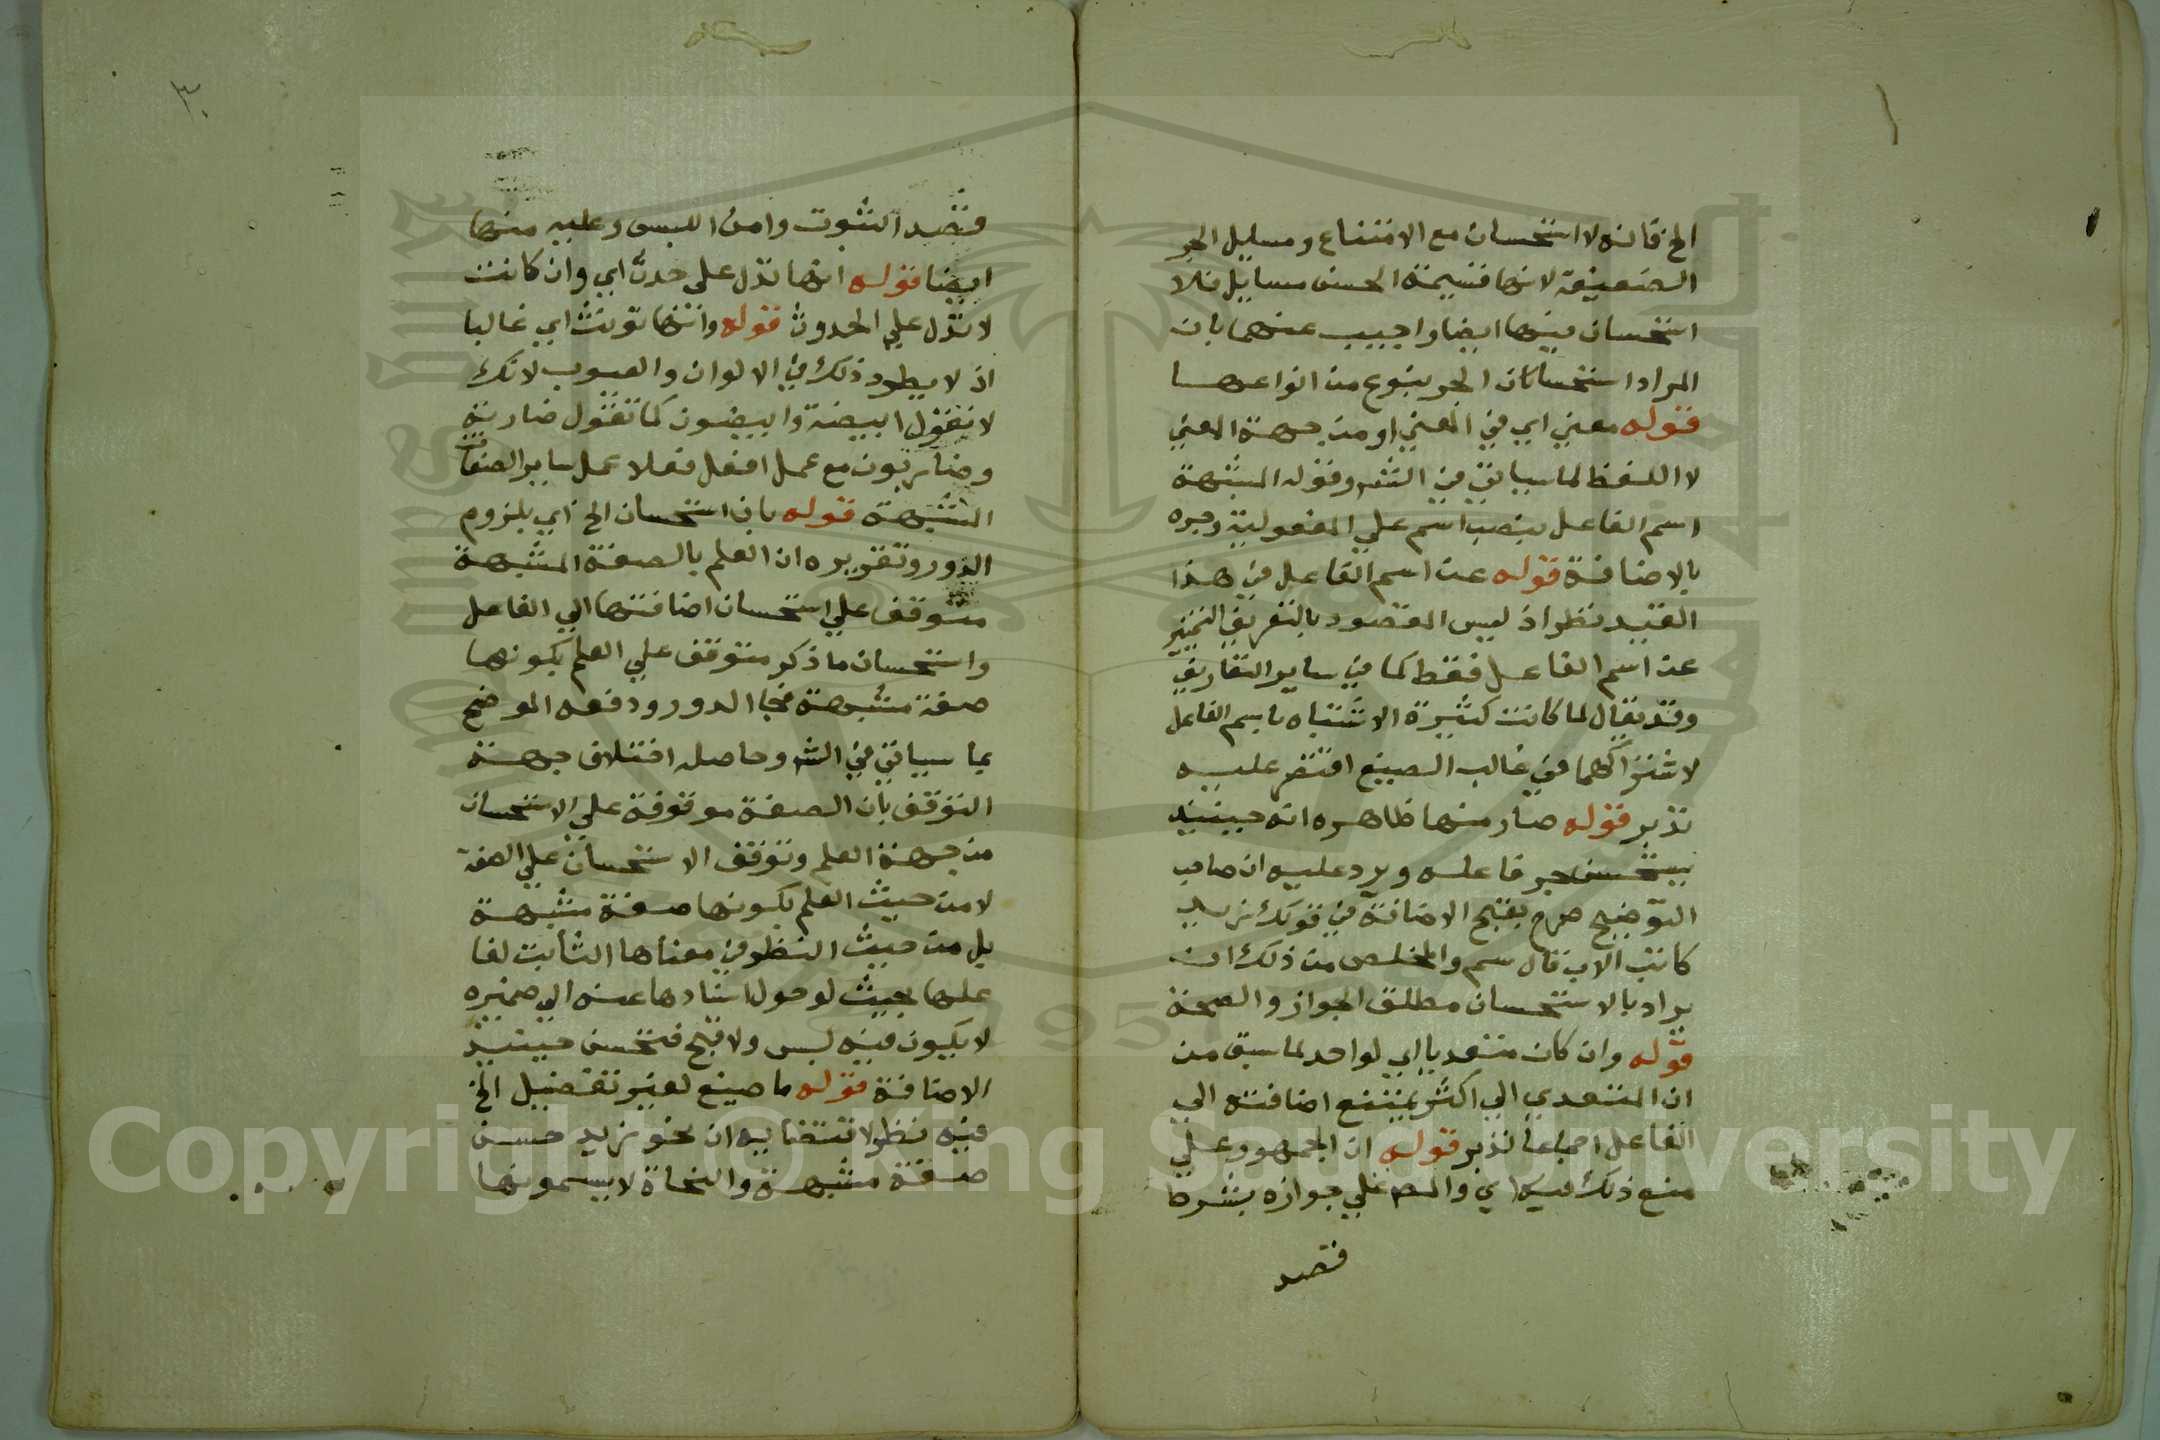 الخ فانه لا استحسان مع الامتناع ومسايل الجر
الضعيفة لانها قسيمة الحسن مسايل فلا
استحسان فيها ايضا واجيب عنهما بان
المراد استحسان الجر بنوع من انواعها
قوله معني اي في المعني او من جهة المعني
لا اللفظ لما سياتي في الشر وقوله المشبهة
اسم الفاعل بنصب اسم علي المفعولية وجره
بالاضافة قوله عن اسم الفاعل في هذا
القيد نظر اذ ليس المقصود بالتعريف التمييز
عن اسم الفاعل فقط كما في ساير التعاريف
وقد يقال لما كانت كثيرة الاشتباه باسم الفاعل
لاشتراكهما في غالب الصيغ اقتصر عليه
تدبر قوله صار منها ظاهره انه حينيذ
يستحسن جر فاعله ويرد عليه ان صاحب
التوضيح صرح بقبح الاضافة في قولك زيد
كاتب الاب قال سم والمخلص من ذلك ان
يراد بالاستحسان مطلق الجواز والصحة
قوله وان كان متعديا اي لواحد لما سبق من
ان المتعدي الي اكثر يمتنع اضافته الي
الفاعل اجماعا تدبر قوله ان الجمهور علي
منع ذلك فيه اي والمص علي جوازه بشرط
قصد
٣٠
قصد الثبوت وامن اللبس وعليه منها
ايضا قوله انها تدل على حدث اي وان كانت
لا تدل علي الحدوث قوله وانها تونث اي غالبا
اذ لا يطرد ذلك في الالوان والعيوب لانك
لا تقول ابيضة وابيضون كما تقول ضاربة
وضاربون مع عمل افعل فعلا عمل ساير الصفات
المشبهة قوله بان استحسان الخ اي يلزم
الدور وتقريره ان العلم بالصفة المشبهة
متوقف علي استحسان اضافتها الي الفاعل
واستحسان ما ذكر متوقف علي العلم بكونها
صفة مشبهة فجا الدور ودفعه الموضح
بما سياتي في الشر وحاصله اختلاف جهة
التوقف بان الصفة موقوفة علي الاستحسان
من جهة العلم وتوقف الاستحسان علي الصفة
لا من حيث العلم بكونها صفة مشبهة
بل من حيث النظر في معناها الثابت لفا
علها بحيث لو حول اسنادها عنه الي ضميره
لا يكون فيه لبس ولا قبح فتحسن حينيذ
الاضافة قوله ما صيغ لغير تفضيل الخ
فيه نظر لاقتضايه ان نحو زيد حسن
صفة مشبهة والنحاة لا يسمونها
Copyright © King Saud University
1957